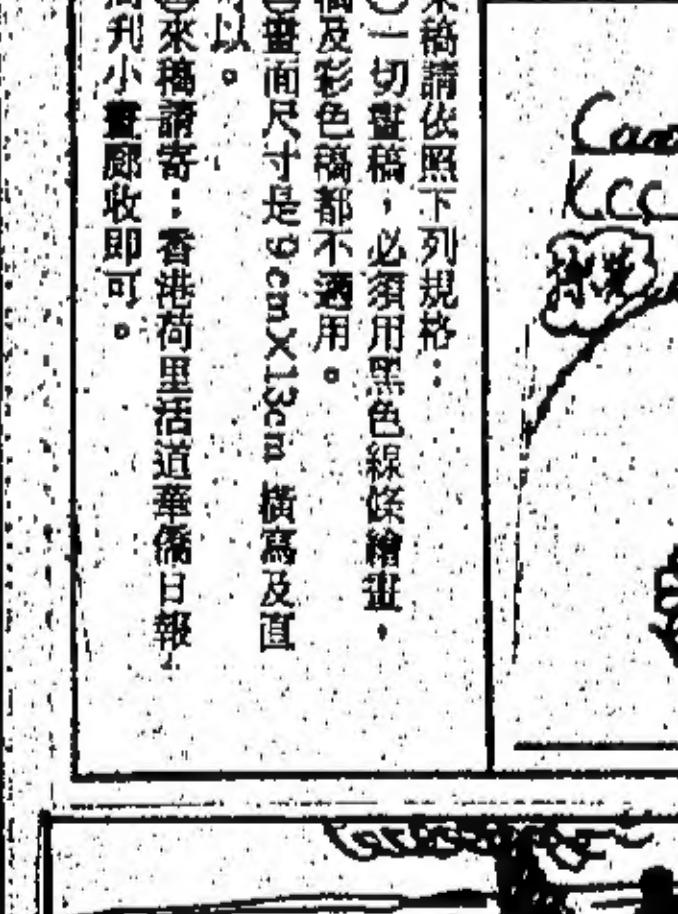 來稿請依照下列規格：
一切畫稿，必須用黑色線條繪畫，
稿及彩色稿都不適用。
畫面尺寸是9cmX13cm 橫寫及直
可以。
來稿請寄：香港荷里活道華僑日報
周刊小畫廊收即可。
KCC